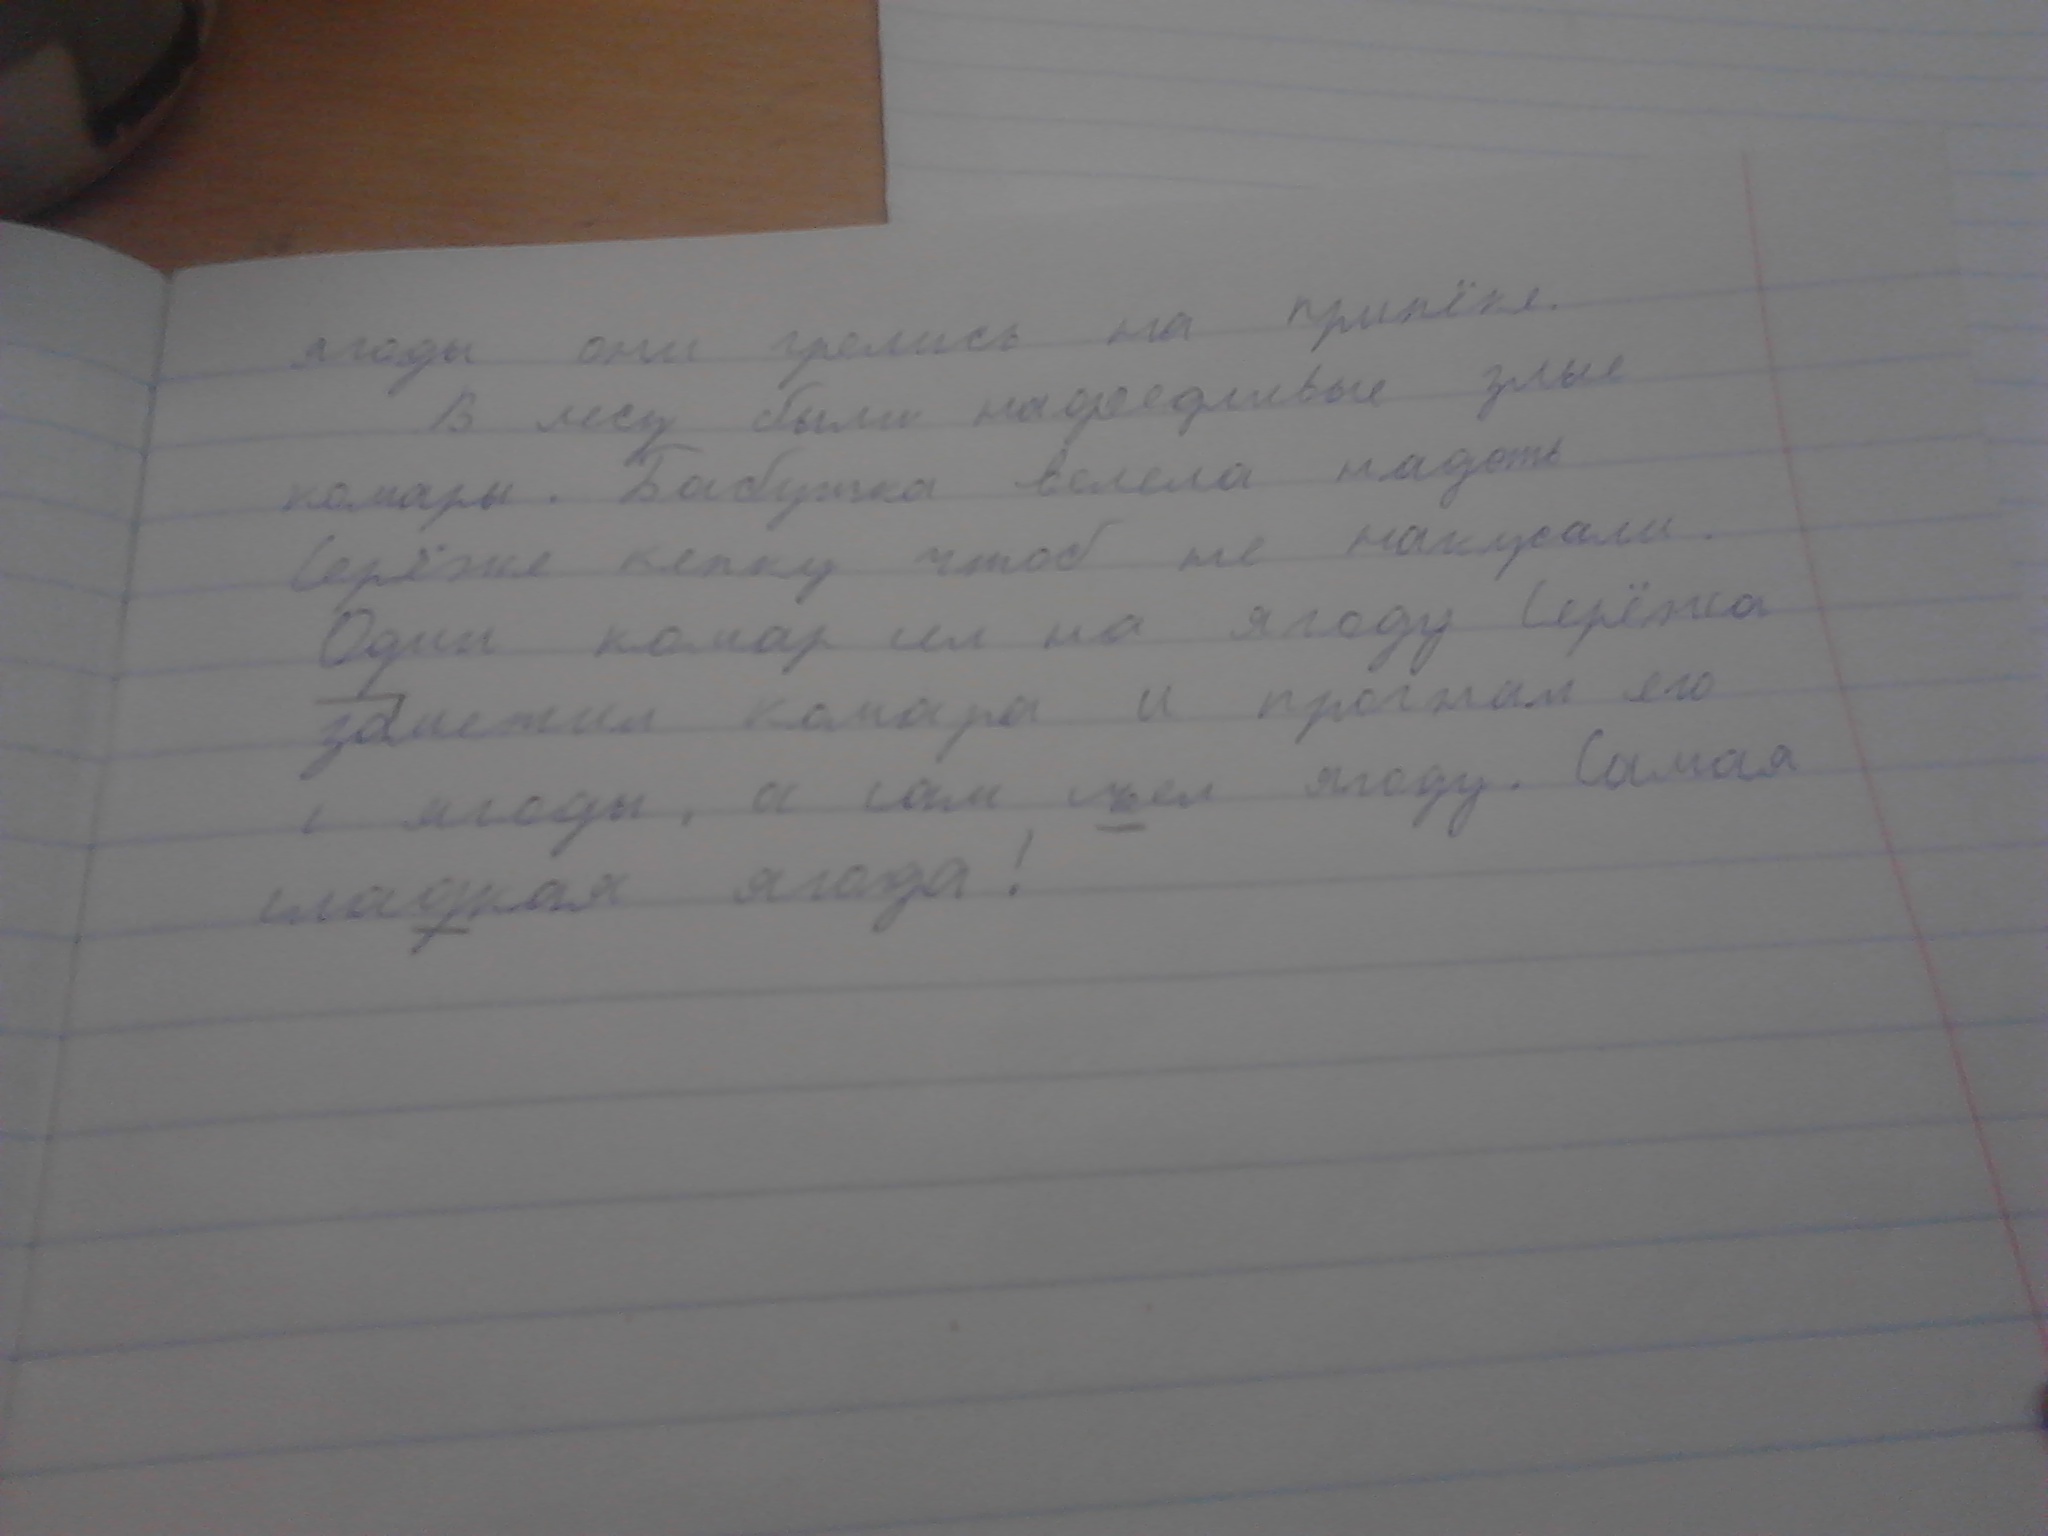 ягоды они грелись на припёке.
В лесу были надоедливые злые
комары. Бабушка велела надеть
Серёже кепку чтоб не накусали.
Один комар сел на ягоду Серёжа
заметил комара и прогнал его
с ягоды, а сам съел ягоду. Самая
сладкая ягода!